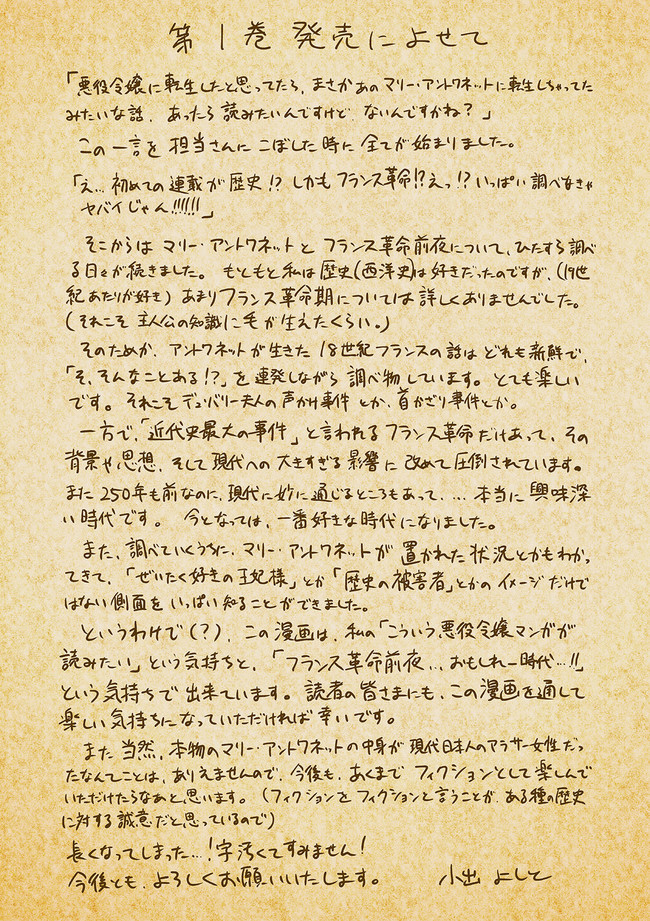 第1巻 発売によせて
「悪役令嬢に転生したと思ってたら、まさかあのマリー・アントワネットに転生しちゃってた
みたいな話、あったら読みたいんですけど、ないんですかね？」
この一言を担当さんにこぼした時に全てが始まりました。
「え…初めての連載が歴史!?しかもフランス革命!?えっ!?いっぱい調べなきゃ
ヤバイじゃん!!!!!!」
そこからはマリー・アントワネットとフランス革命前夜について、ひたすら調べ
る日々が続きました。もともと私は歴史(西洋史)は好きだったのですが、(19世
紀あたりが好き)あまりフランス革命期については詳しくありませんでした。
(それこそ主人公の知識に毛が生えたくらい。)
そのためか、アントワネットが生きた18世紀フランスの話はどれも新鮮で、
「そ、そんなことある!?」を連発しながら調べ物しています。とても楽しい
です。それこそデュバリー夫人の声かけ事件とか、首かざり事件とか。
一方で、「近代史最大の事件」と言われるフランス革命だけあって、その
背景や思想、そして現代への大きすぎる影響に改めて圧倒されています。
また250年も前なのに、現代に妙に通じるところもあって、…本当に興味深
い時代です。今となっては、一番好きな時代になりました。
また、調べていくうちに、マリー・アントワネットが置かれた状況とかもわかっ
てきて、「ぜいたく好きの王妃様」とか「歴史の被害者」とかのイメージだけで
はない側面をいっぱい知ることができました。
というわけで(？)、この漫画は、私の「こういう悪役令嬢マンガが
読みたい」という気持ちと、「フランス革命前夜…おもしれー時代…!!」
という気持ちで出来ています。読者の皆さまにも、この漫画を通して
楽しい気持ちになっていただければ幸いです。
また当然、本物のマリー・アントワネットの中身が現代日本人のアラサー女性だっ
たなんてことは、ありえませんので、今後も、あくまでフィクションとして楽しんで
いただけたらなあと思います。(フィクションをフィクションと言うことが、ある種の歴史
に対する誠意だと思っているので)
長くなってしまった…!字汚くてすみません!
今後とも、よろしくお願いいたします。 小出よしと